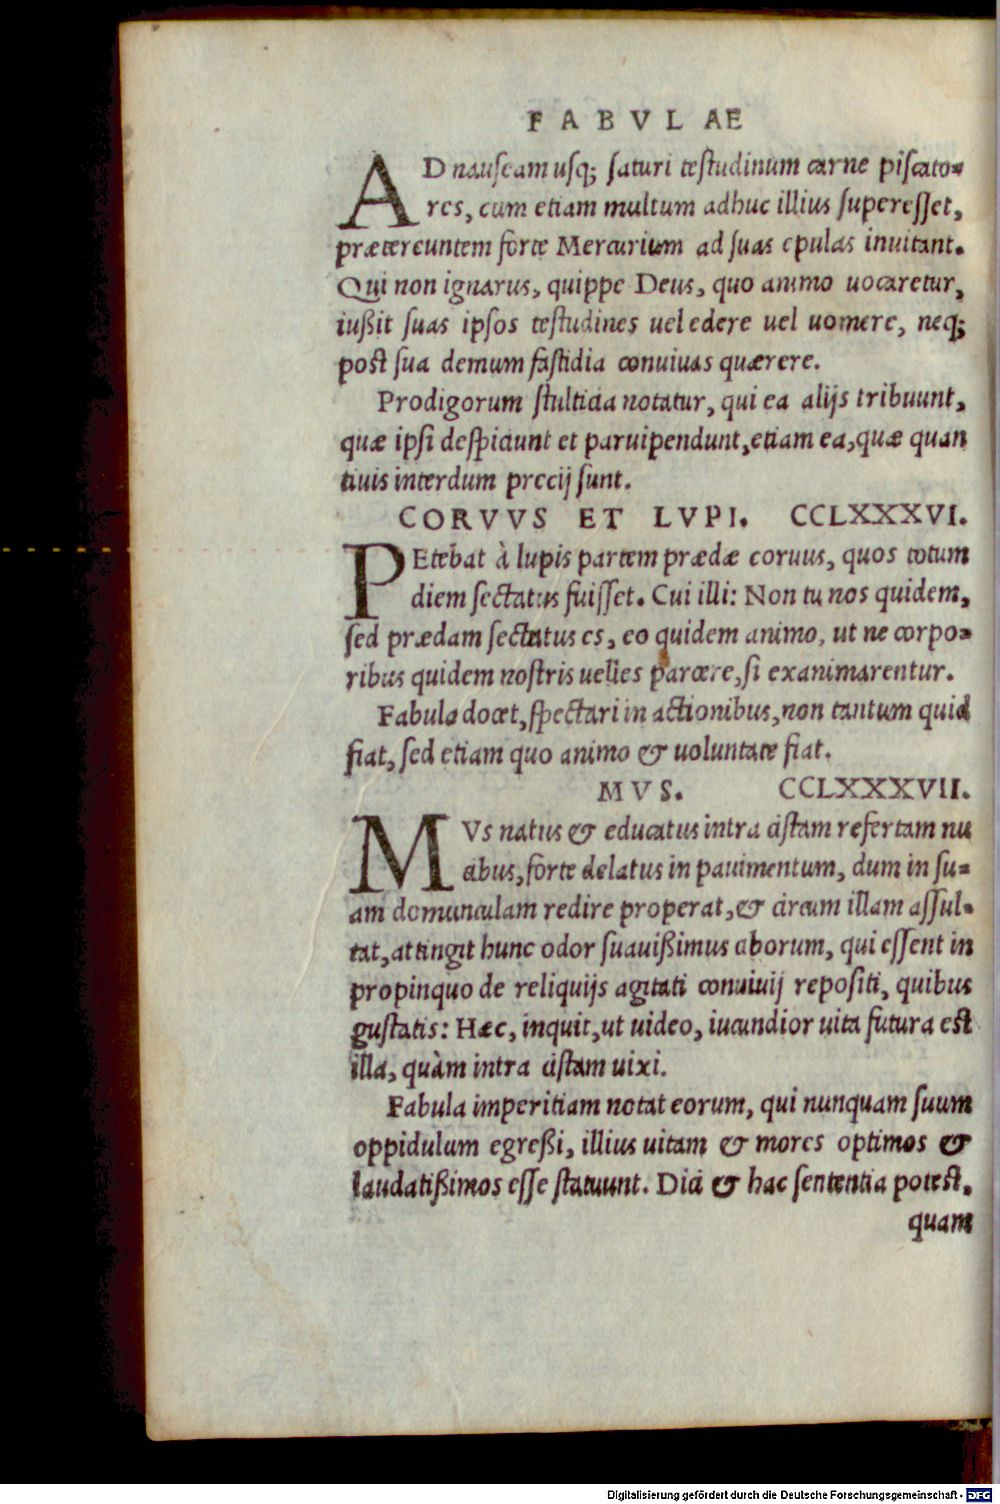 FABVLAE
AD nauseam usq; saturi testudinum carne piscato-
res, cum etiam multum adhuc illius superesset,
prætereuntem forte Mercurium ad suas epulas inuitant.
Qui non ignarus, quippe Deus, quo animo uocaretur,
iußit suas ipsos testudines uel edere uel uomere, neq;
post sua demum fastidia conuiuas quærere.
Prodigorum stulticia notatur, qui ea alijs tribuunt,
quæ ipsi despiciunt et paruipendunt, etiam ea, quæ quan
tiuis interdum precij sunt.
CORVVS ET LVPI. CCLXXXVI.
PEtebat à lupis partem prædæ coruus, quos totum
diem sectatus fuisset. Cui illi: Non tu nos quidem,
sed prædam sectatus es, eo quidem animo, ut ne corpo-
ribus quidem nostris uelles parcere, si exanimarentur.
Fabula docet, spectari in actionibus, non tantum quid
fiat, sed etiam quo animo & uoluntate fiat.
MVS. CCLXXXVII.
MVs natus & educatus intra cistam refertam nu
cibus, forte delatus in pauimentum, dum in su-
am domunculam redire properat, & circum illam assul-
tat, attingit hunc odor suauißimus ciborum, qui essent in
propinquo de reliquijs agitati conuiuij repositi, quibus
gustatis: Hæc, inquit, ut uideo, iucundior uita futura est
illa, quàm intra cistam uixi.
Fabula imperitiam notat eorum, qui nunquam suum
oppidulum egreßi, illius uitam & mores optimos &
laudatißimos esse statuunt. Dici & hac sententia potest.
quam
Digitalisierung gefördert durch die Deutsche Forschungsgemeinschaft - DFG